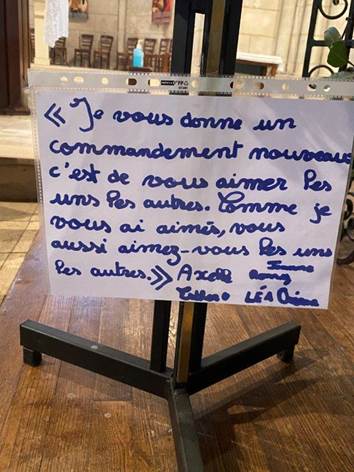 « Je vous donne un
commandement nouveau
c'est de vous aimer les
uns les autres. Comme je
vous ai aimés, vous
aussi aimez-vous les uns
les autres.» Axelle
LÉA